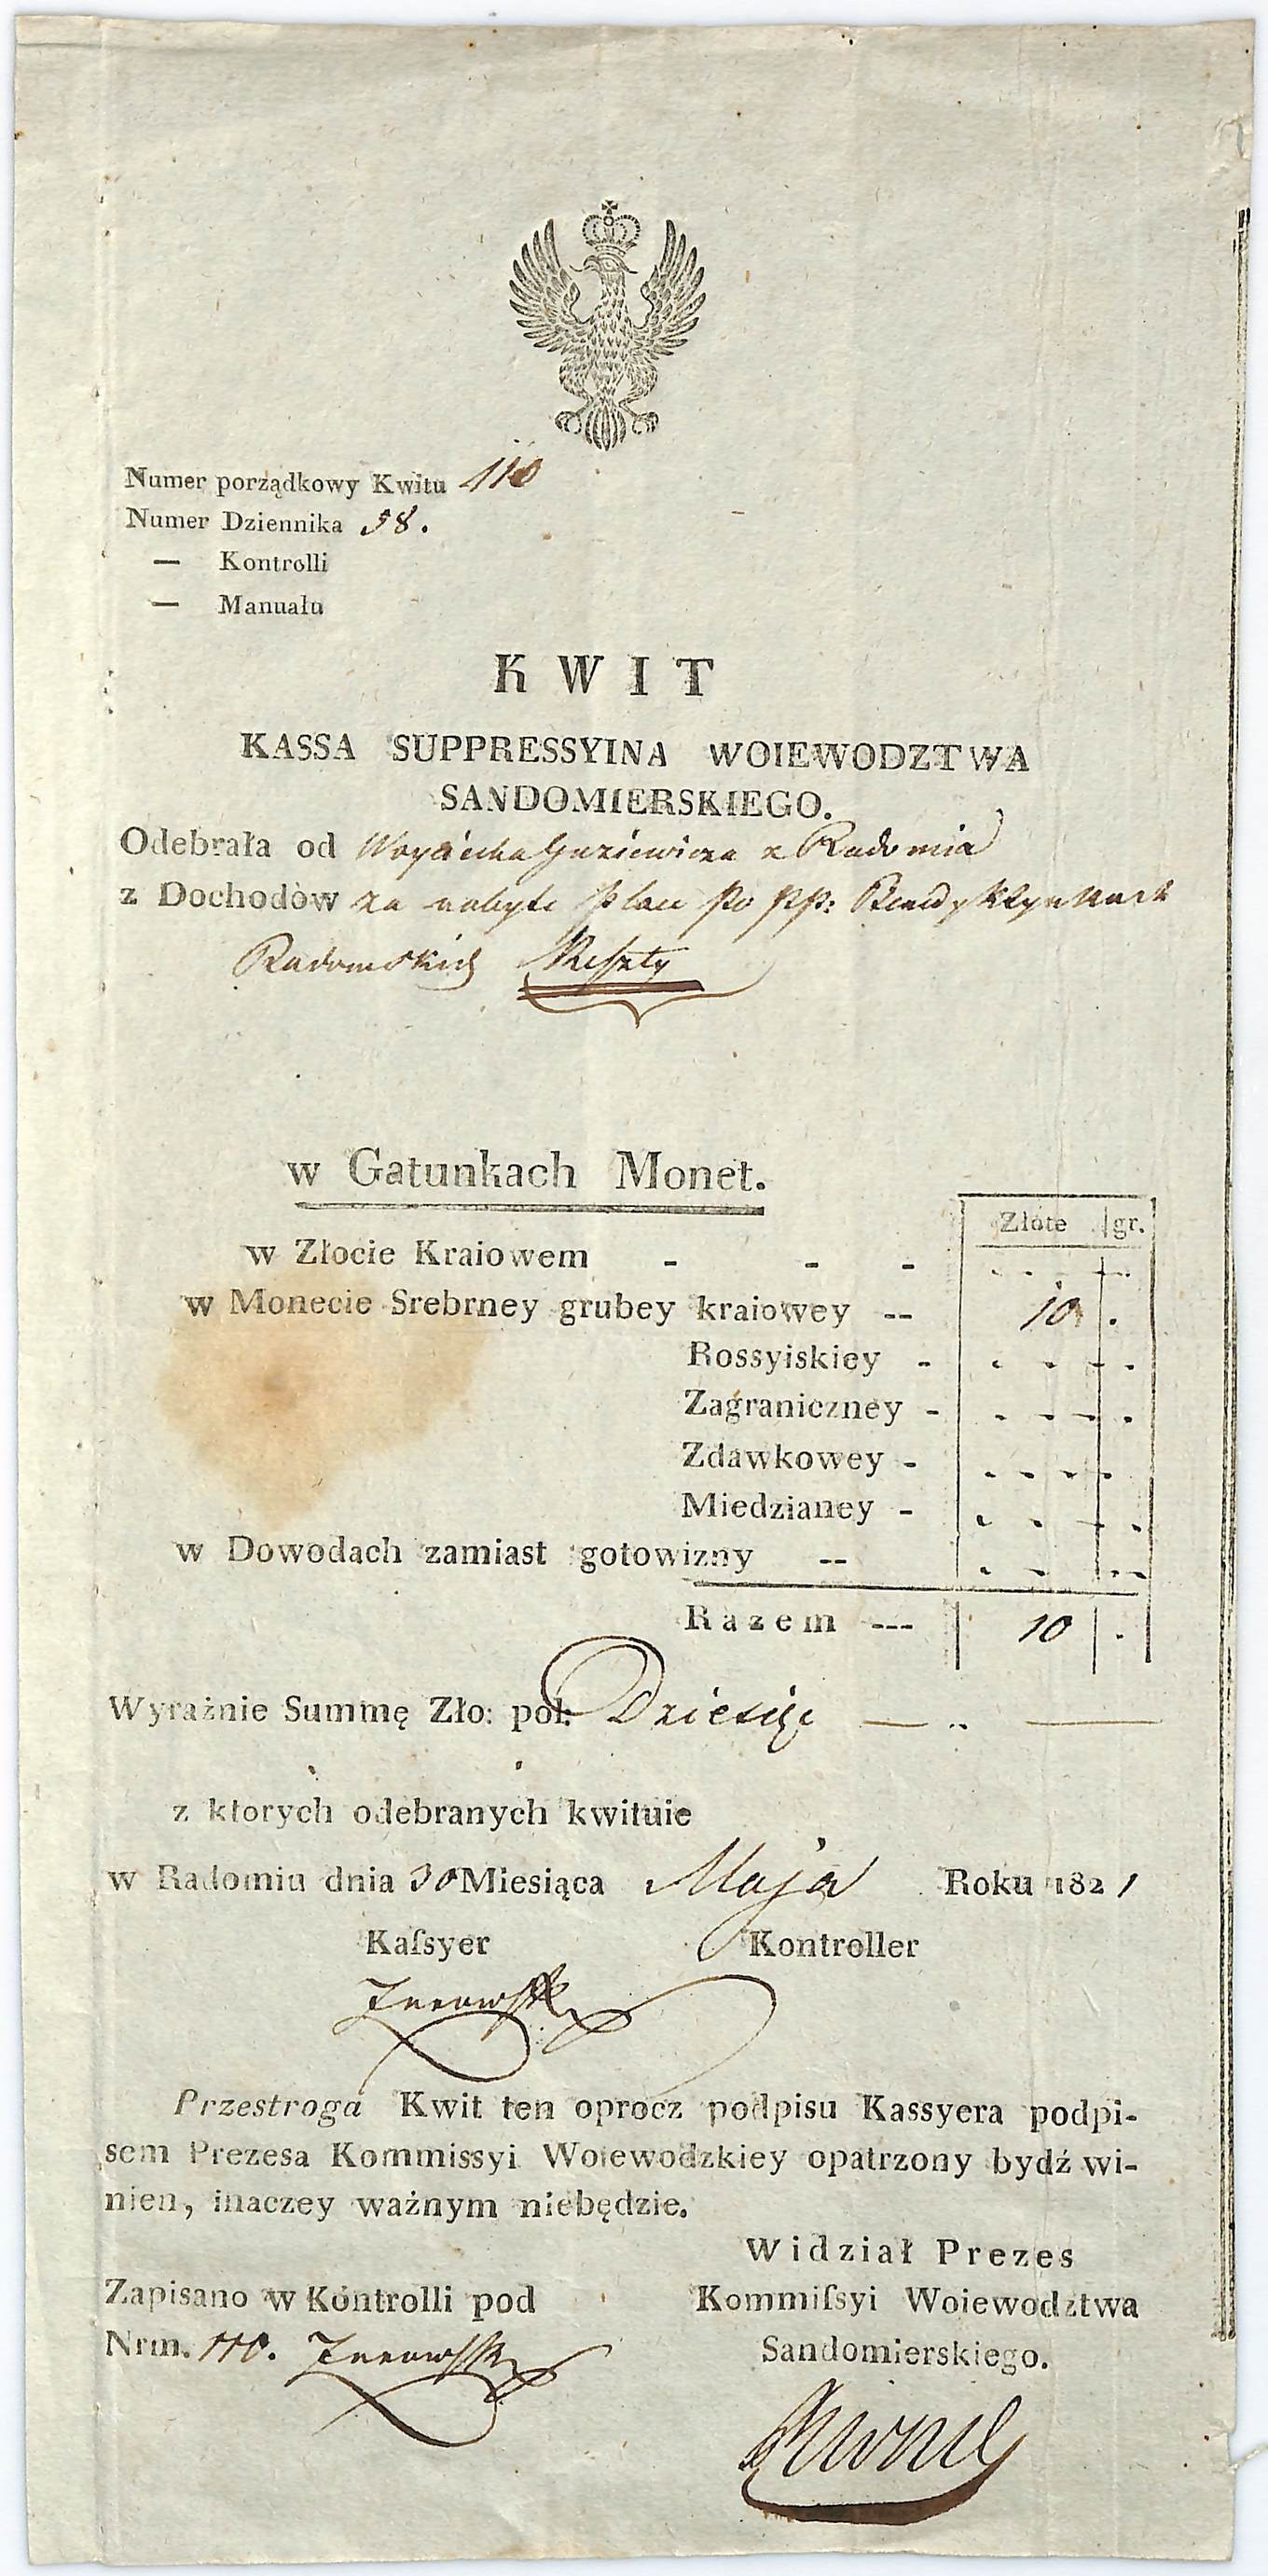 Numer porządkowy Kwitu 110
Numer Dziennika 58.
— Kontrolli
— Manuału
KWIT
KASSA SUPPRESSYINA WOIEWODZTWA
SANDOMIERSKIEGO.
Odebrała od Woyciecha Guziewicza z Radomia
z Dochodòw za nabyte place po PP:
Radomskich Reszty
w Gatunkach Monet.
Złote gr.
w Złocie Kraiowem - - -
w Monecie Srebrney grubey kraiowey -- 10 .
Rossyiskiey -
Zagraniczney -
Zdawkowey -
Miedzianey -
w Dowodach zamiast gotowizny --
Razem --- 10 .
Wyraźnie Summę Zło: pol: Dziesięć
z ktorych odebranych kwituie
w Radomiu dnia 30 Miesiąca Maja Roku 1821
Kaſsyer Kontroller
Przestroga Kwit ten oprocz podpisu Kassyera podpi-
sem Prezesa Kommissyi Woiewodzkiey opatrzony bydź wi-
nien, inaczey ważnym niebędzie.
Widział Prezes
Zapisano w Kontrolli pod Kommiſsyi Woiewodztwa
Nrm. 110. Sandomierskiego.